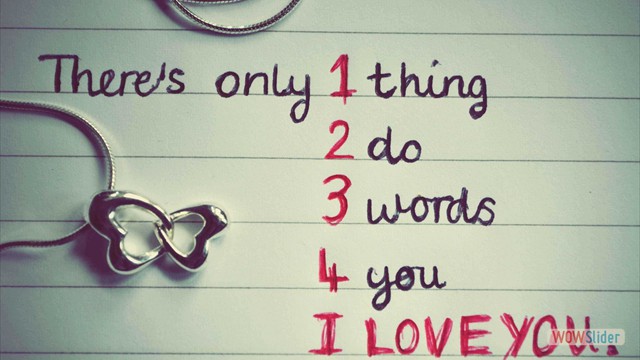 There's only 1 thing
2 do
3 words
4 you
I LOVE YOU.
WOWSlider